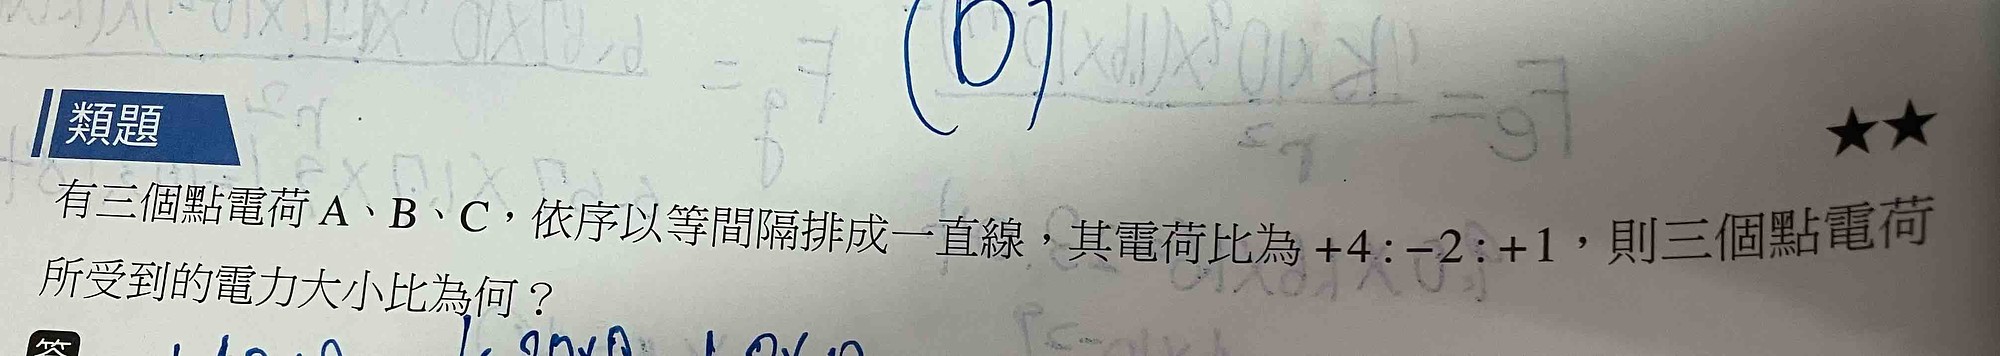 (b)
類題
★★
有三個點電荷 A、B、C，依序以等間隔排成一直線，其電荷比為 +4：−2：+1，則三個點電荷
所受到的電力大小比為何？
答